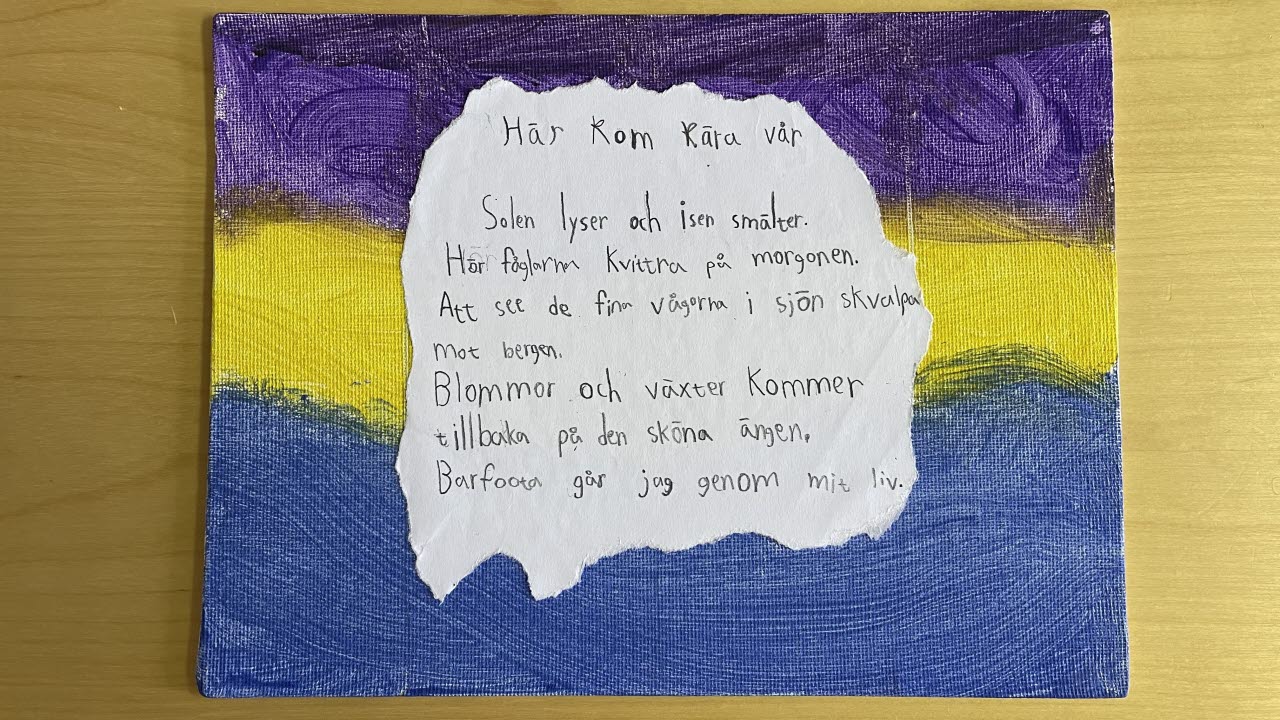 Här kom kära vår
Solen lyser och isen smälter.
Hör fåglarna kvittra på morgonen.
Att see de fina vågorna i sjön skvalpa
mot bergen.
Blommor och växter kommer
tillbaka på den sköna ängen.
Barfoota går jag genom mit liv.